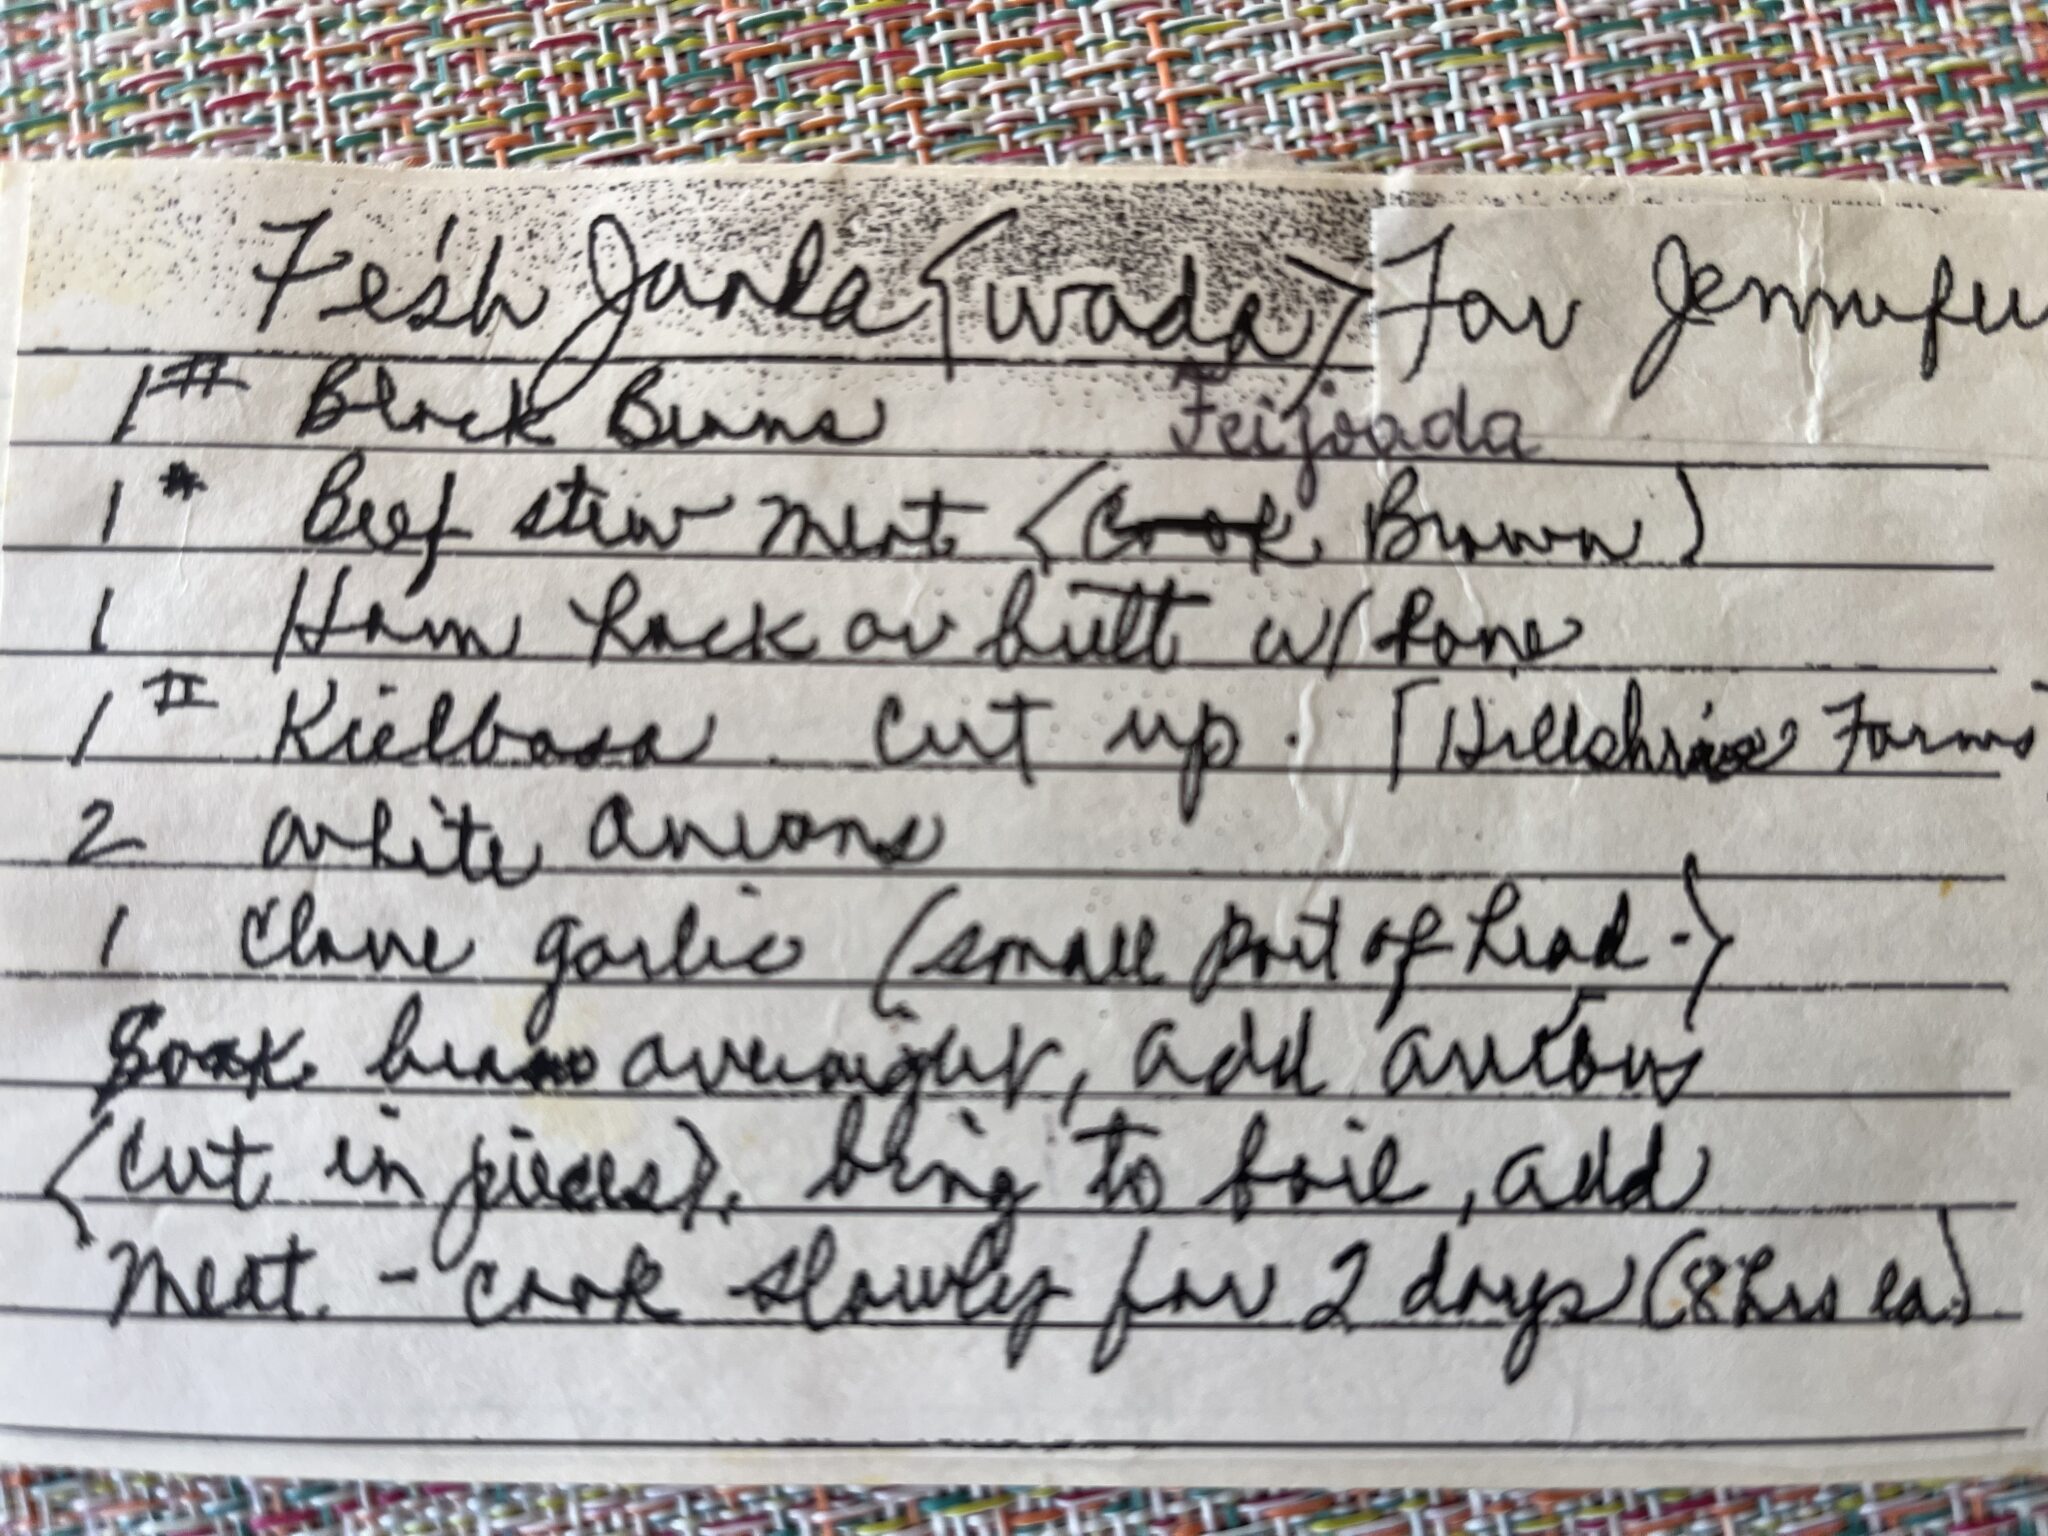 Fe'sh Janda (wada) For Jennifer
1# Black Beans Feijoada
1# Beef stew meat (Cook Brown)
1 Ham hock or butt w/ bone
1# Kielbasa cut up. [Hillshire Farms]
2 white onions
1 Clove garlic (small part of head-)
Soak beans overnight, add onions
(cut in pieces), bring to boil, add
meat. - cook slowly for 2 days (8 hrs ea.)